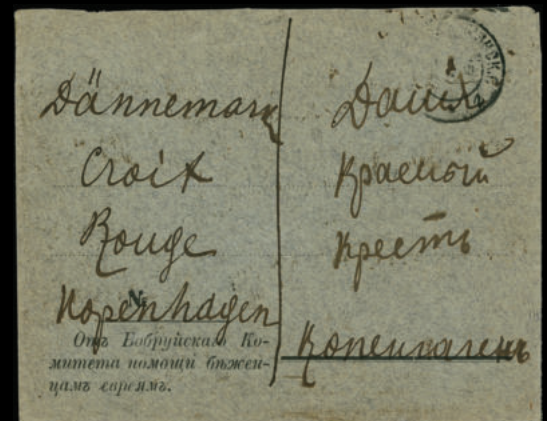 Dännemark
Croix
Rouge
Kopenhagen
№
Отъ Бобруйскаго Ко-
митета помощи бѣжен-
цамъ евреямъ.
Данія
Красный
Крестъ
Копенгагенъ